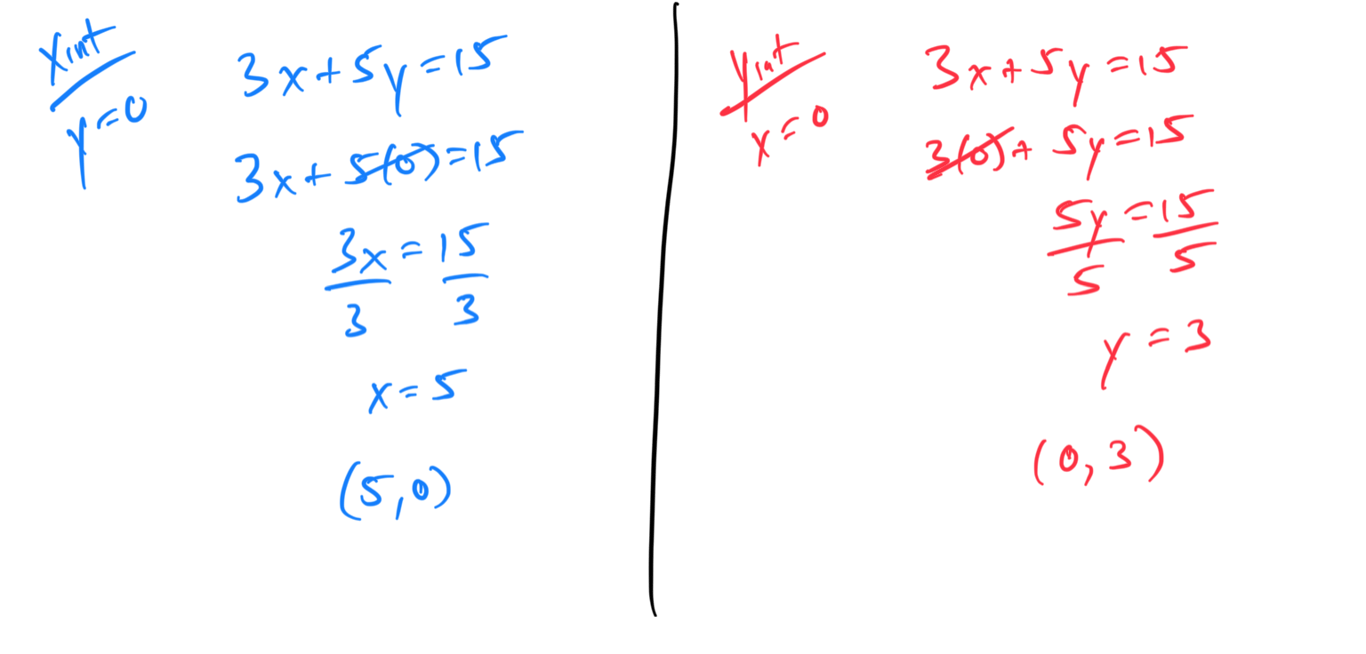 xint
y=0
3x+5y=15
3x+5(0)=15
3x=15
3 3
x=5
(5,0)
yint
x=0
3x+5y=15
3(0)+5y=15
5y=15
5 5
y=3
(0,3)